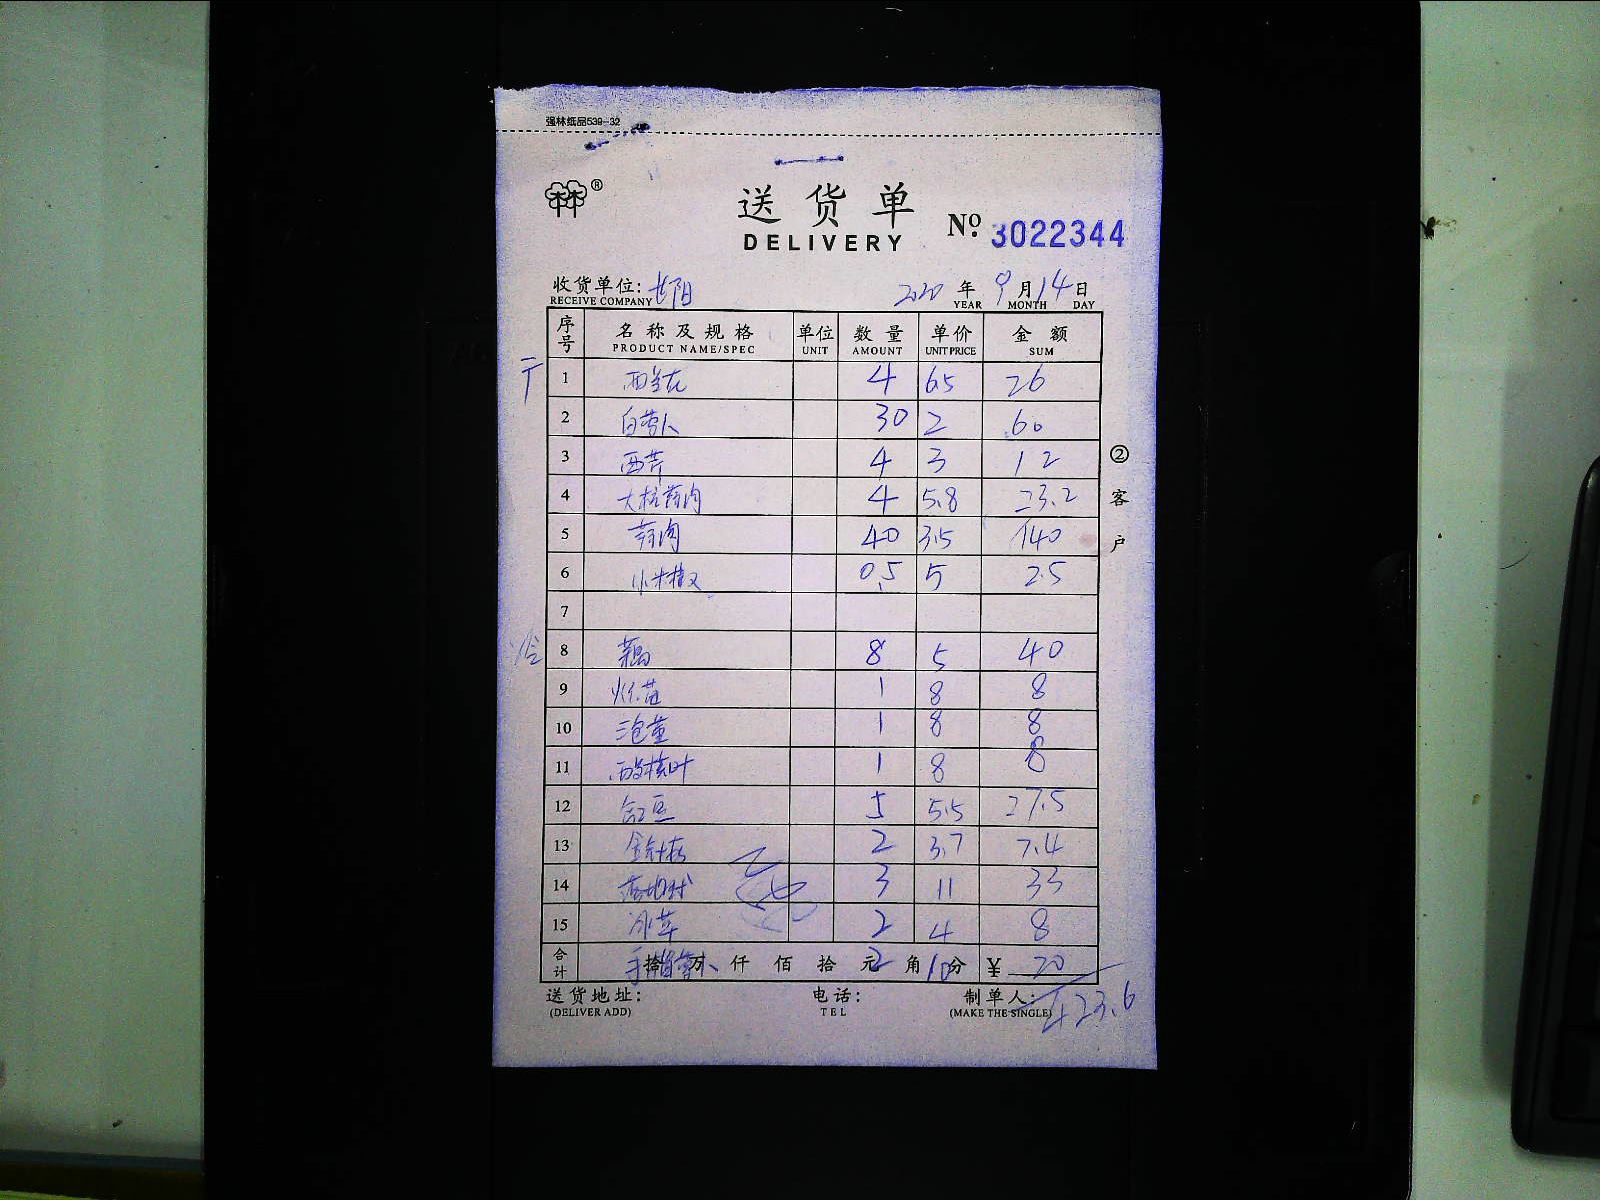 强林纸品539-32
®
送货单
DELIVERY
No. 3022344
收货单位: 七阳 2020 年 9 月 14 日
RECEIVE COMPANY YEAR MONTH DAY
序号 名称及规格 单位 数量 单价 金额
PRODUCT NAME/SPEC UNIT AMOUNT UNIT PRICE SUM
1 西兰花 4 6.5 26
2 白萝卜 30 2 60
3 西芹 4 3 12
4 大杭茄肉 4 5.8 23.2
5 40 3.5 140
6 小米椒 0.5 5 2.5
7
冷 8 藕 8 5 40
9 8 1 8
10 1 8 8
11 1 8 8
12 豆 5 5.5 27.5
13 金针菇 2 3.7 7.4
14 3 11 33
15 冰草 2 4 8
合计 拾 万 仟 佰 拾 元 角 分 ¥ 20
手指萝卜 2 10
423.6
送货地址: 电话: 制单人:
(DELIVER ADD) TEL (MAKE THE SINGLE)
②客户